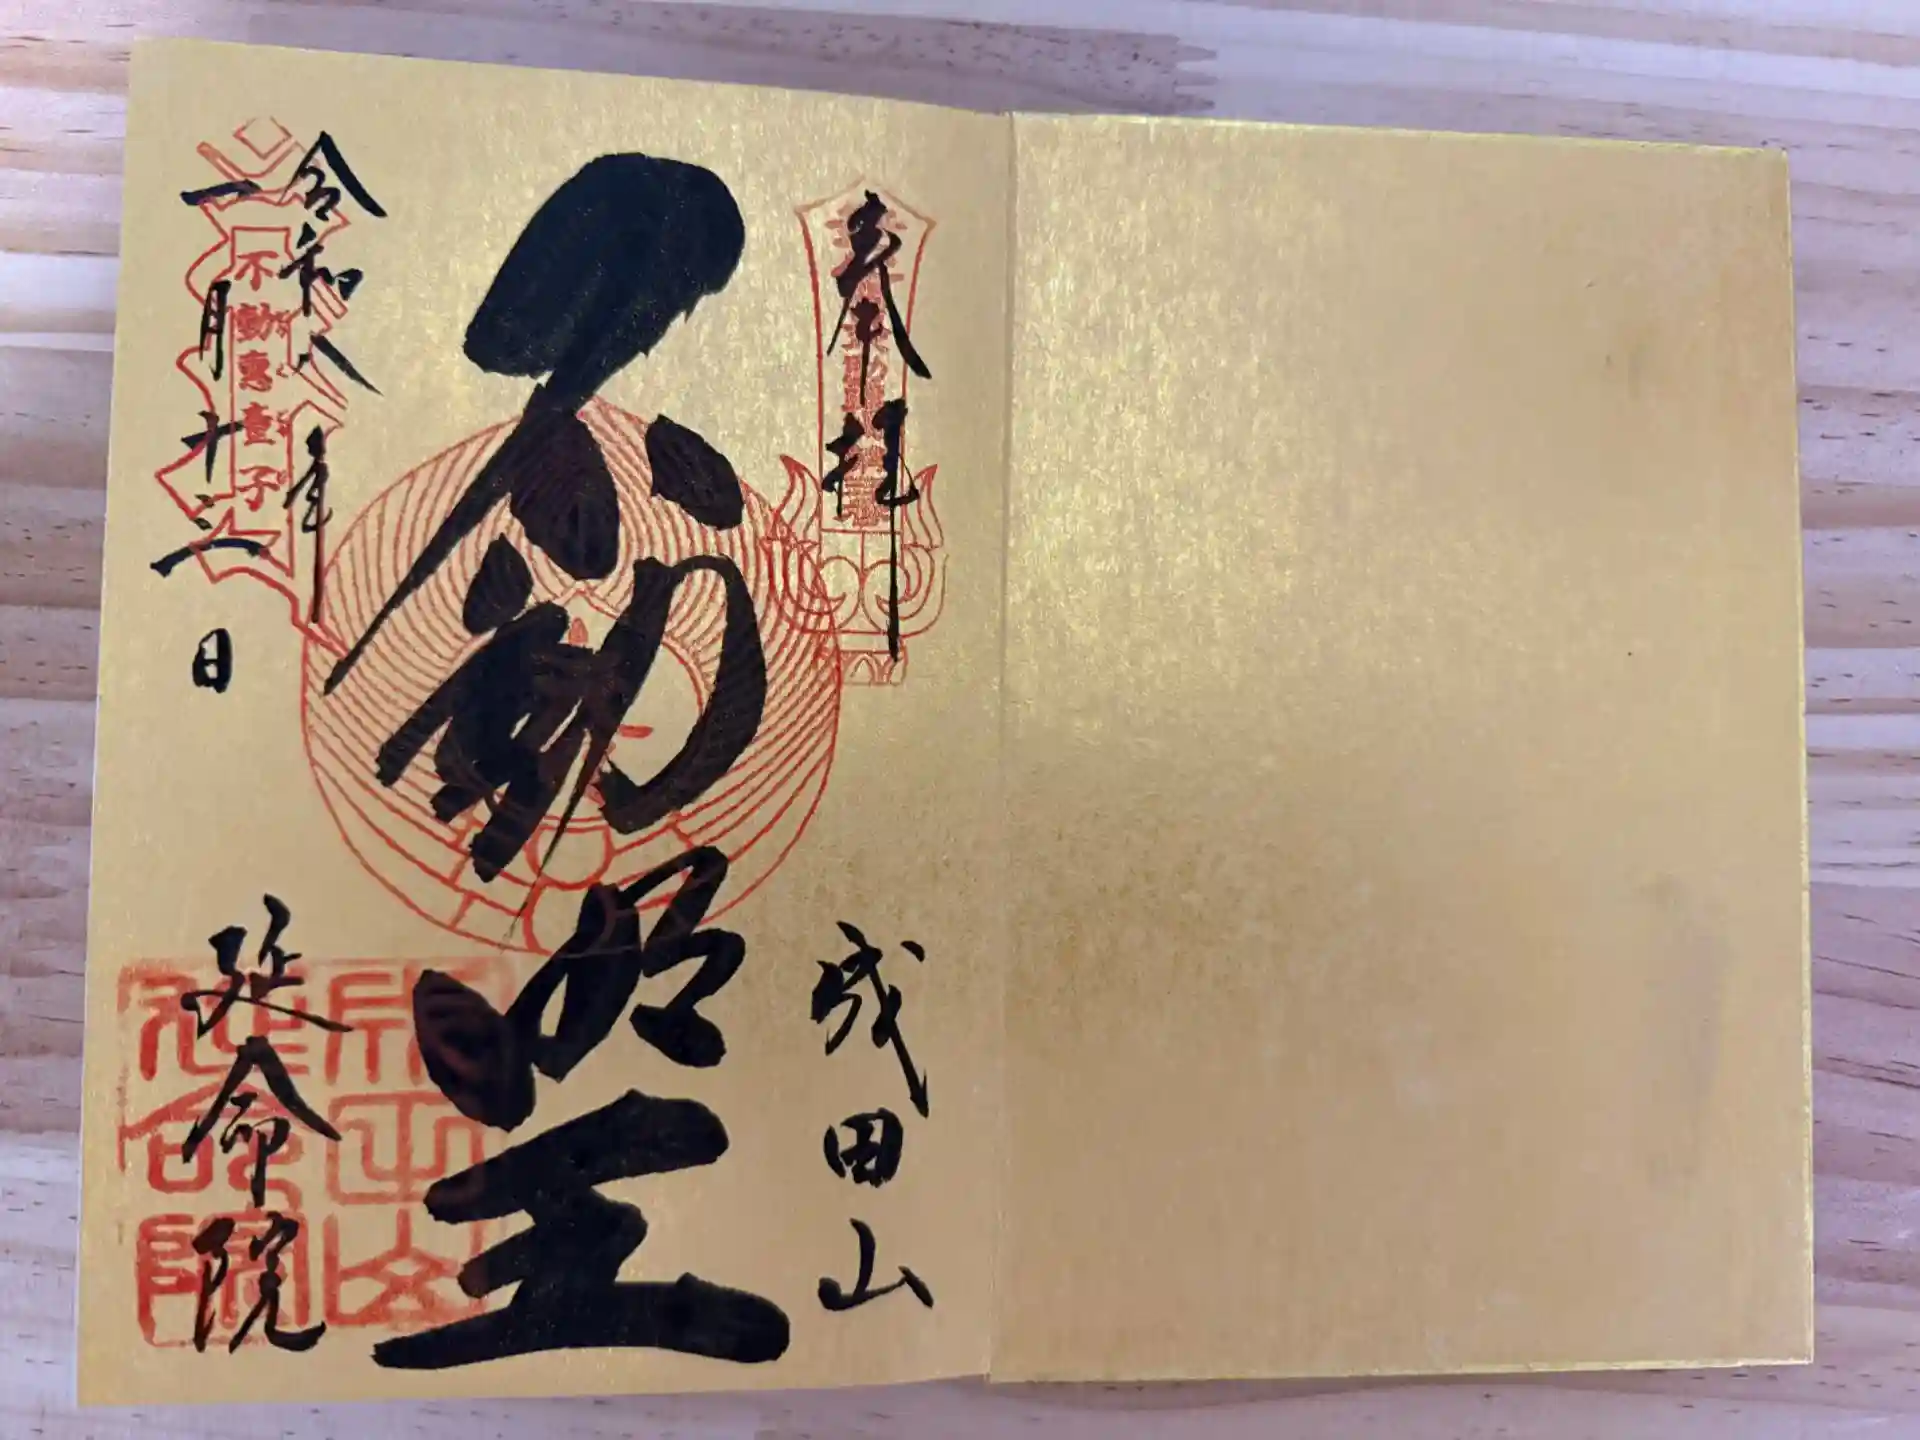 奉拝
成田山
不動明王
令和八年
一月十二日
不動恵童子
延命院